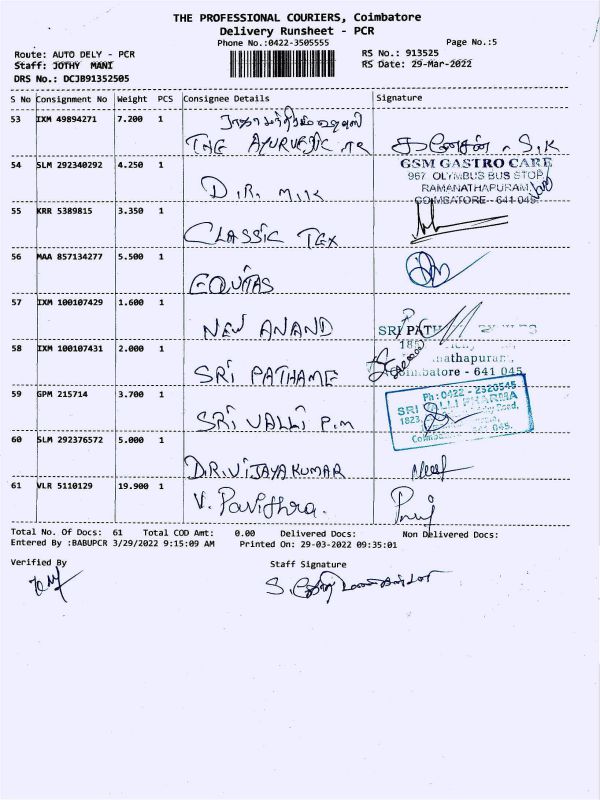 THE PROFESSIONAL COURIERS, Coimbatore
Delivery Runsheet - PCR
Phone No.:0422-3505555
Page No.:5
Route: AUTO DELY - PCR
RS No.: 913525
Staff: JOTHY MANI
RS Date: 29-Mar-2022
DRS No.: DCJB91352505
S No Consignment No Weight PCS Consignee Details Signature
53 IXM 49894271 7.200 1
THE AYURVEDIC
54 SLM 292340292 4.250 1
GSM GASTRO CARE
967 OLYMBUS BUS STOP,
RAMANATHAPURAM,
COIMBATORE - 641 045.
55 KRR 5389815 3.350 1
CLASSIC TEX
56 MAA 857134277 5.500 1
EQUITAS
57 IXM 100107429 1.600 1
NEW ANAND
SRI
58 IXM 100107431 2.000 1
SRI PATHAME
- 641 045.
59 GPM 215714 3.700 1
SRI VALLI P.M
Ph : 0422 - 2320545
SRI VALLI PHARMA
1823
Road,
60 SLM 292376572 5.000 1
D.R.VIJAYAKUMAR
61 VLR 5110129 19.900 1
V. Pavithra.
Total No. Of Docs: 61 Total COD Amt: 0.00 Delivered Docs: Non Delivered Docs:
Entered By :BABUPCR 3/29/2022 9:15:09 AM Printed On: 29-03-2022 09:35:01
Verified By Staff Signature